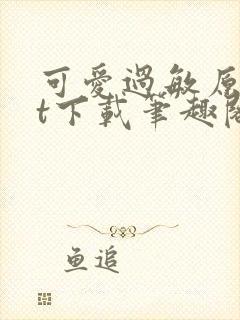 可愛過敏原
t下載筆趣閣
鱼追